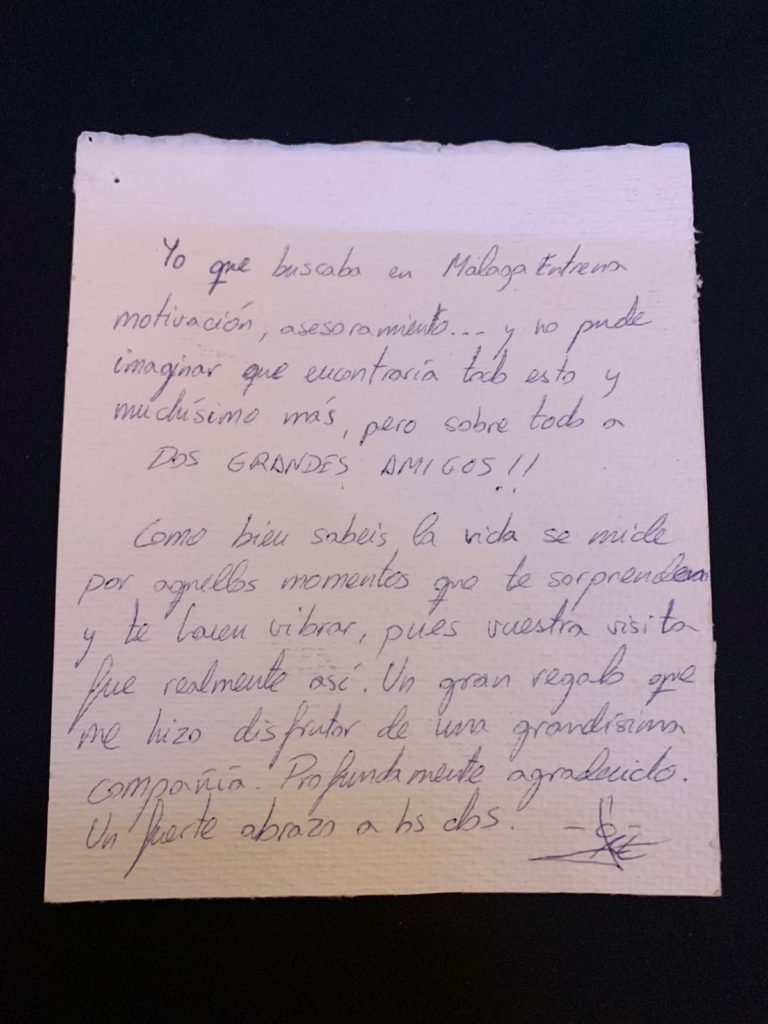 Yo que buscaba en Málaga Entrena
motivación, asesoramiento... y no pude
imaginar que encontraría todo esto y
muchísimo más, pero sobre todo a
DOS GRANDES AMIGOS!!
Como bien sabeis la vida se mide
por aquellos momentos que te sorprenden
y te hacen vibrar, pues vuestra visita
fue realmente así. Un gran regalo que
me hizo disfrutar de una grandísima
compañía. Profundamente agradecido.
Un fuerte abrazo a los dos.